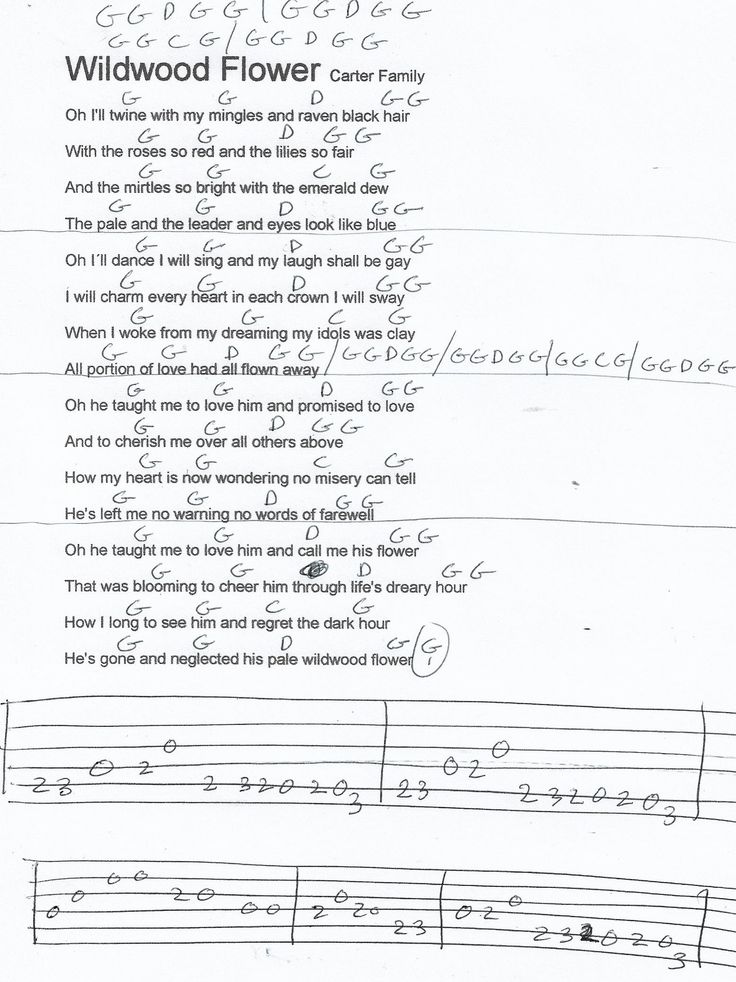 G G D G G / G G D G G
G G C G / G G D G G
Wildwood Flower Carter Family
G G D G G
Oh I'll twine with my mingles and raven black hair
G G D G G
With the roses so red and the lilies so fair
G G C G
And the mirtles so bright with the emerald dew
G G D G G
The pale and the leader and eyes look like blue
G G D G G
Oh I´ll dance I will sing and my laugh shall be gay
G G D G G
I will charm every heart in each crown I will sway
G G C G
When I woke from my dreaming my idols was clay
G G D G G / G G D G G / G G D G G / G G C G / G G D G G
All portion of love had all flown away
G G D G G
Oh he taught me to love him and promised to love
G G D G G
And to cherish me over all others above
G G C G
How my heart is now wondering no misery can tell
G G D G G
He's left me no warning no words of farewell
G G D G G
Oh he taught me to love him and call me his flower
G G D G G
That was blooming to cheer him through life's dreary hour
G G C G
How I long to see him and regret the dark hour
G G D G / G 1
He's gone and neglected his pale wildwood flower
2 3 0 2 0 2 3 2 0 2 0 3 2 3 0 2 0 2 3 2 0 2 0 3
0 0 0 0 2 0 0 0 2 0 2 0 2 3 0 2 0 2 3 2 0 2 0 3